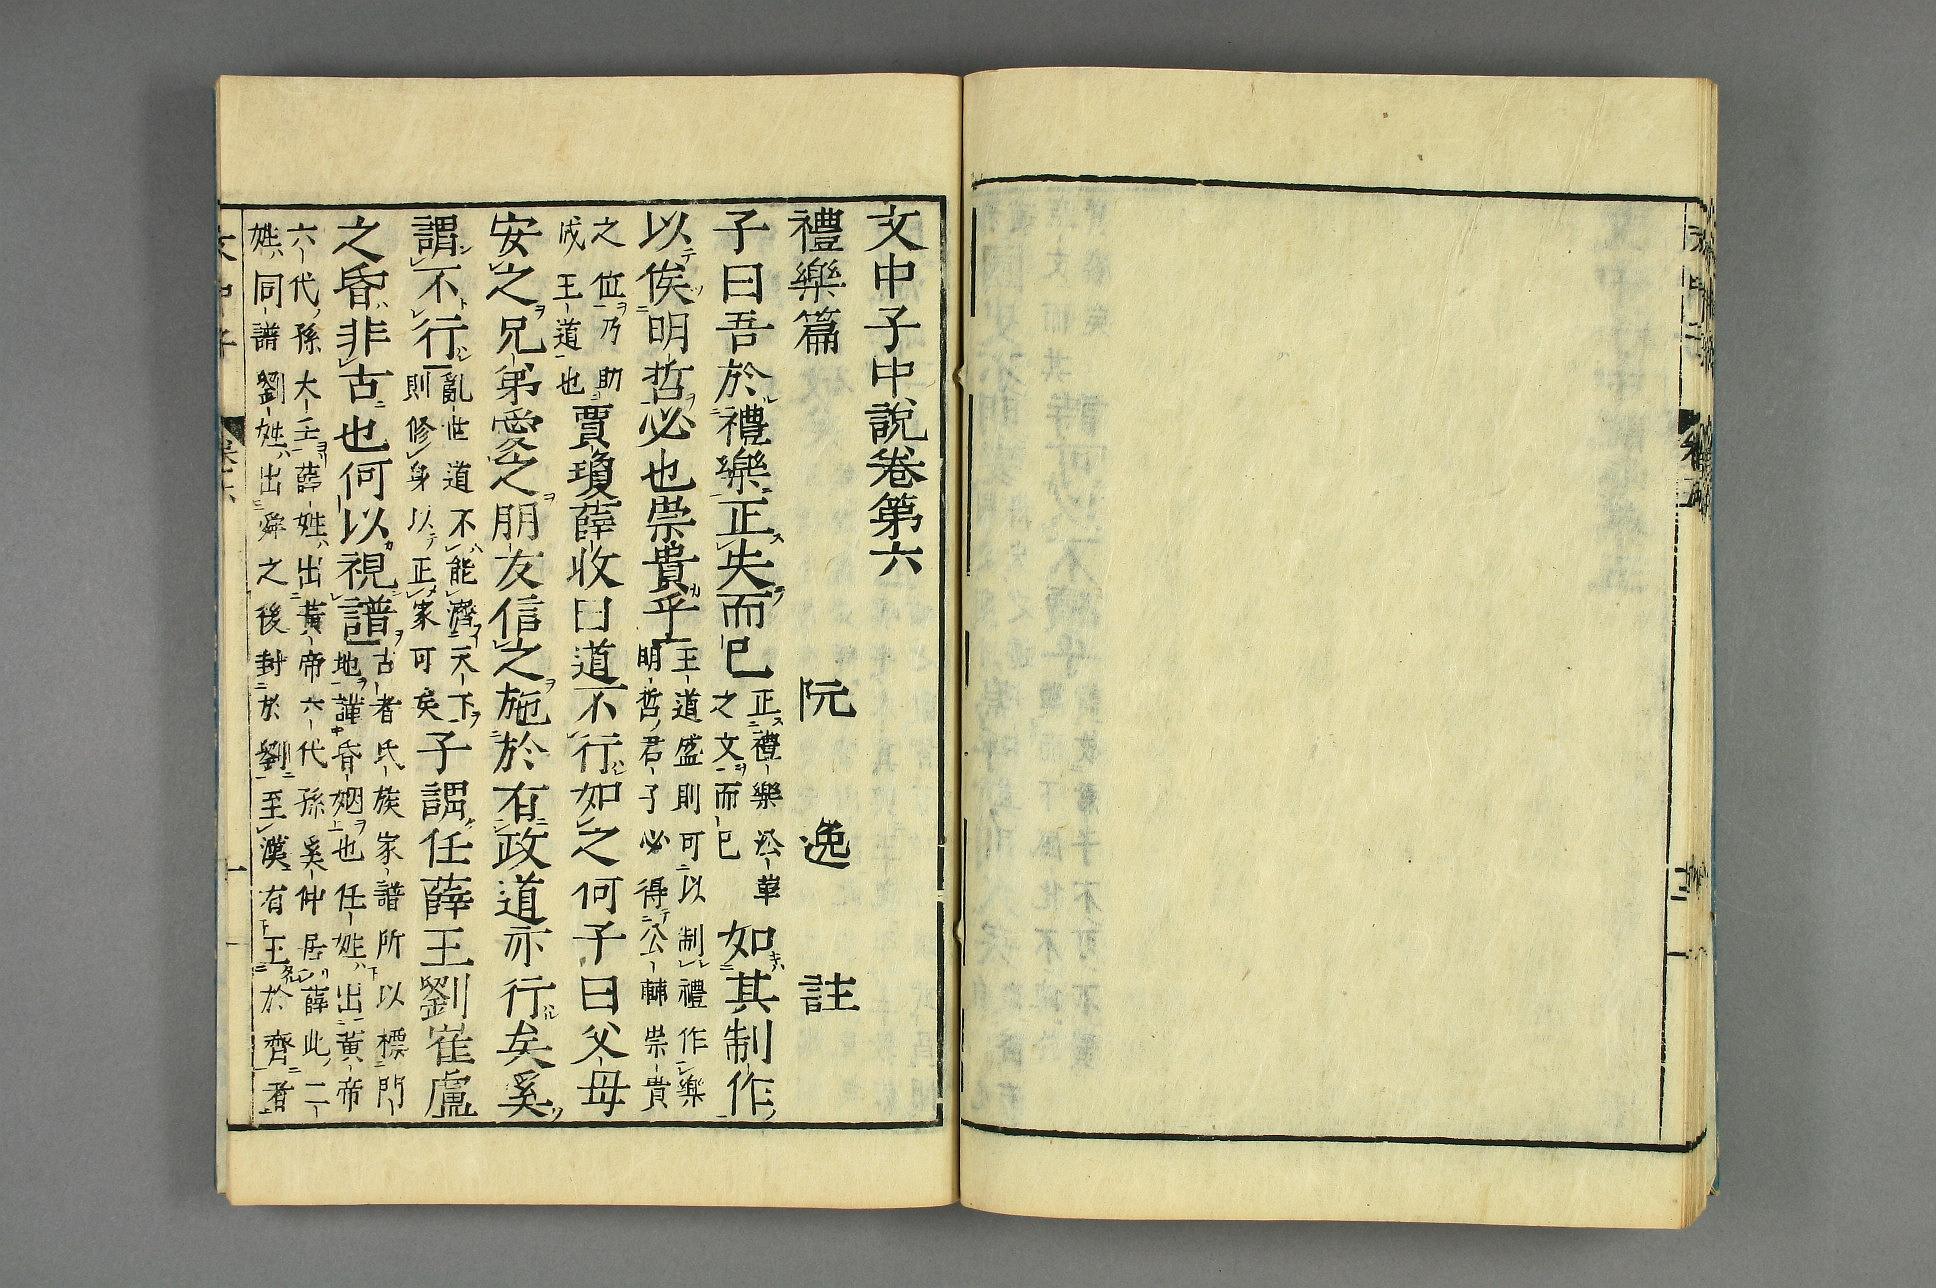 文中子中說卷第六
禮樂篇　阮　逸　註
子曰吾於禮樂正失而已正禮樂沿革之文而已如其制作
以俟明哲必也崇貴乎王道盛則可以制禮作樂明哲君子必得公輔崇貴
之位乃助成王道也賈瓊薛收曰道不行如之何子曰父母
安之兄弟愛之朋友信之施於有政道亦行矣奚
謂不行亂世道不能濟天下則修身以正家可矣子謂任薛王劉崔盧
之昏非古也何以視譜古者氏族家譜所以標門地謹昏姻也任姓出黃帝
六代孫大壬薛姓出黃帝六代孫奚仲居薛此二姓同譜劉姓出舜之後封於劉至漢有王於齊者